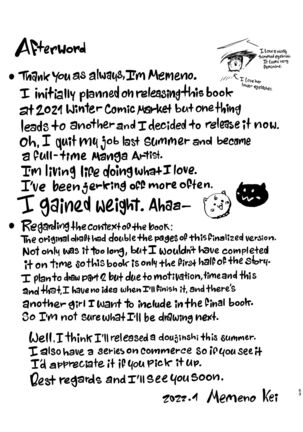 Afterword
I love really slanted eyelashes. It looks very feminine.
I love her lower eyelashes.
• Thank you as always, I'm Memeno.
I initially planned on releasing this book
at 2021 Winter Comic Market but one thing
leads to another and I decided to release it now.
Oh, I quit my job last summer and became
a full-time Manga Artist.
I'm living life doing what I love.
I've been jerking off more often.
I gained weight. Ahaa—
• Regarding the context of the book:
The original draft had double the pages of this finalized version.
Not only was it too long, but I wouldn't have completed
it on time so this book is only the first half of the story.
I plan to draw part 2 but due to motivation, time and this
and that, I have no idea when I'll finish it, and there's
another girl I want to include in the final book.
So I'm not sure what I'll be drawing next.
Well, I think I'll released a doujinshi this summer.
I also have a series on commerce so if you see it
I'd appreciate it if you pick it up.
Best regards and I'll see you soon.
2022.1 Memeno Kei